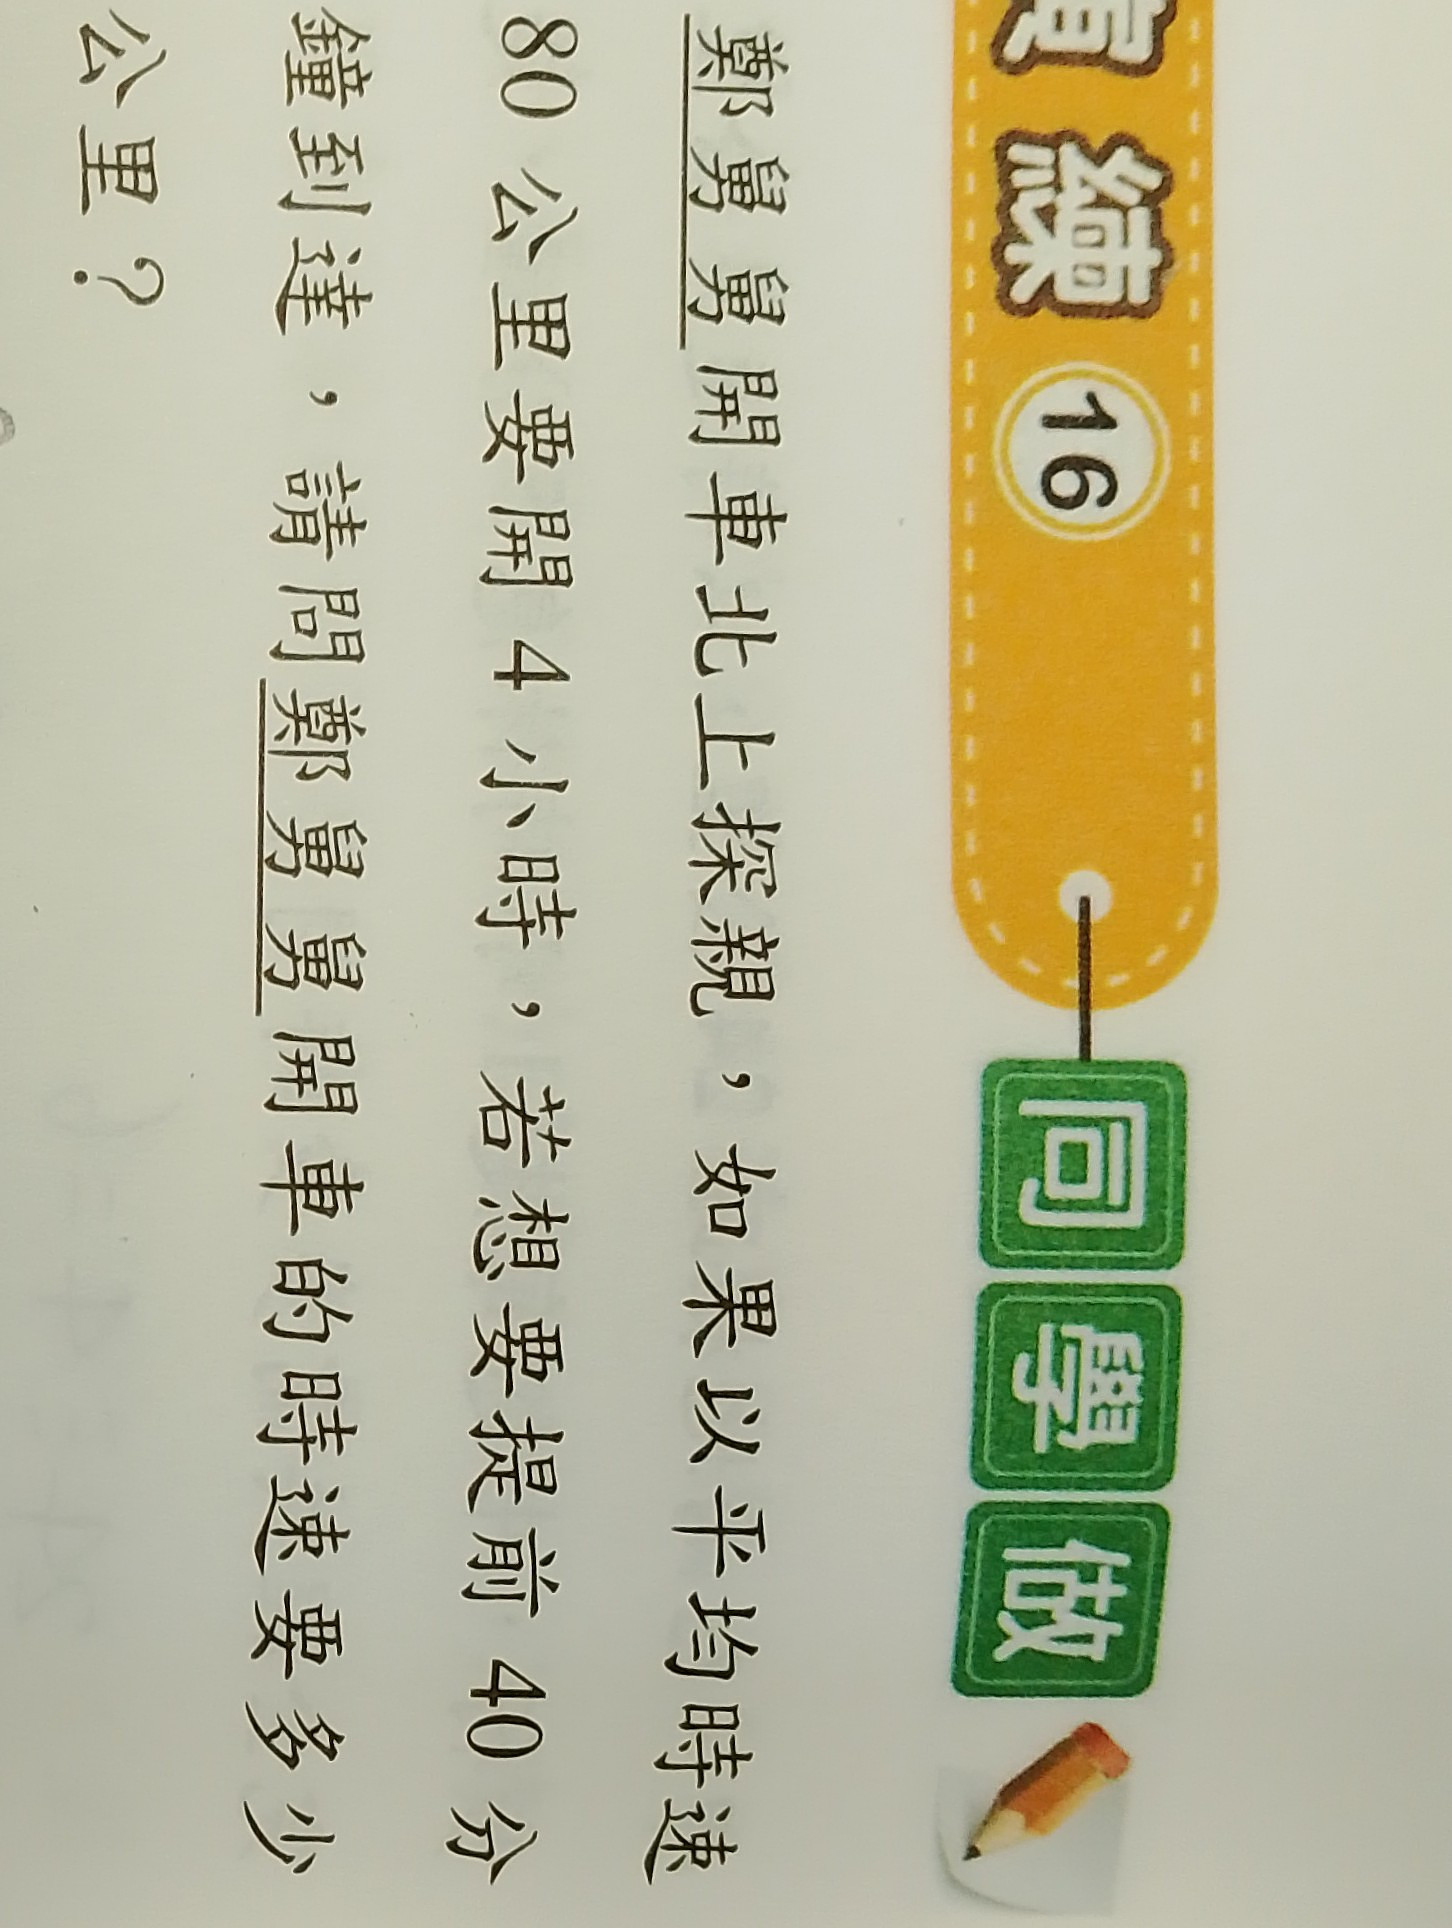 績 16 同學做
鄭舅舅開車北上探親，如果以平均時速
80 公里要開 4 小時，若想要提前 40 分
鐘到達，請問鄭舅舅開車的時速要多少
公里？